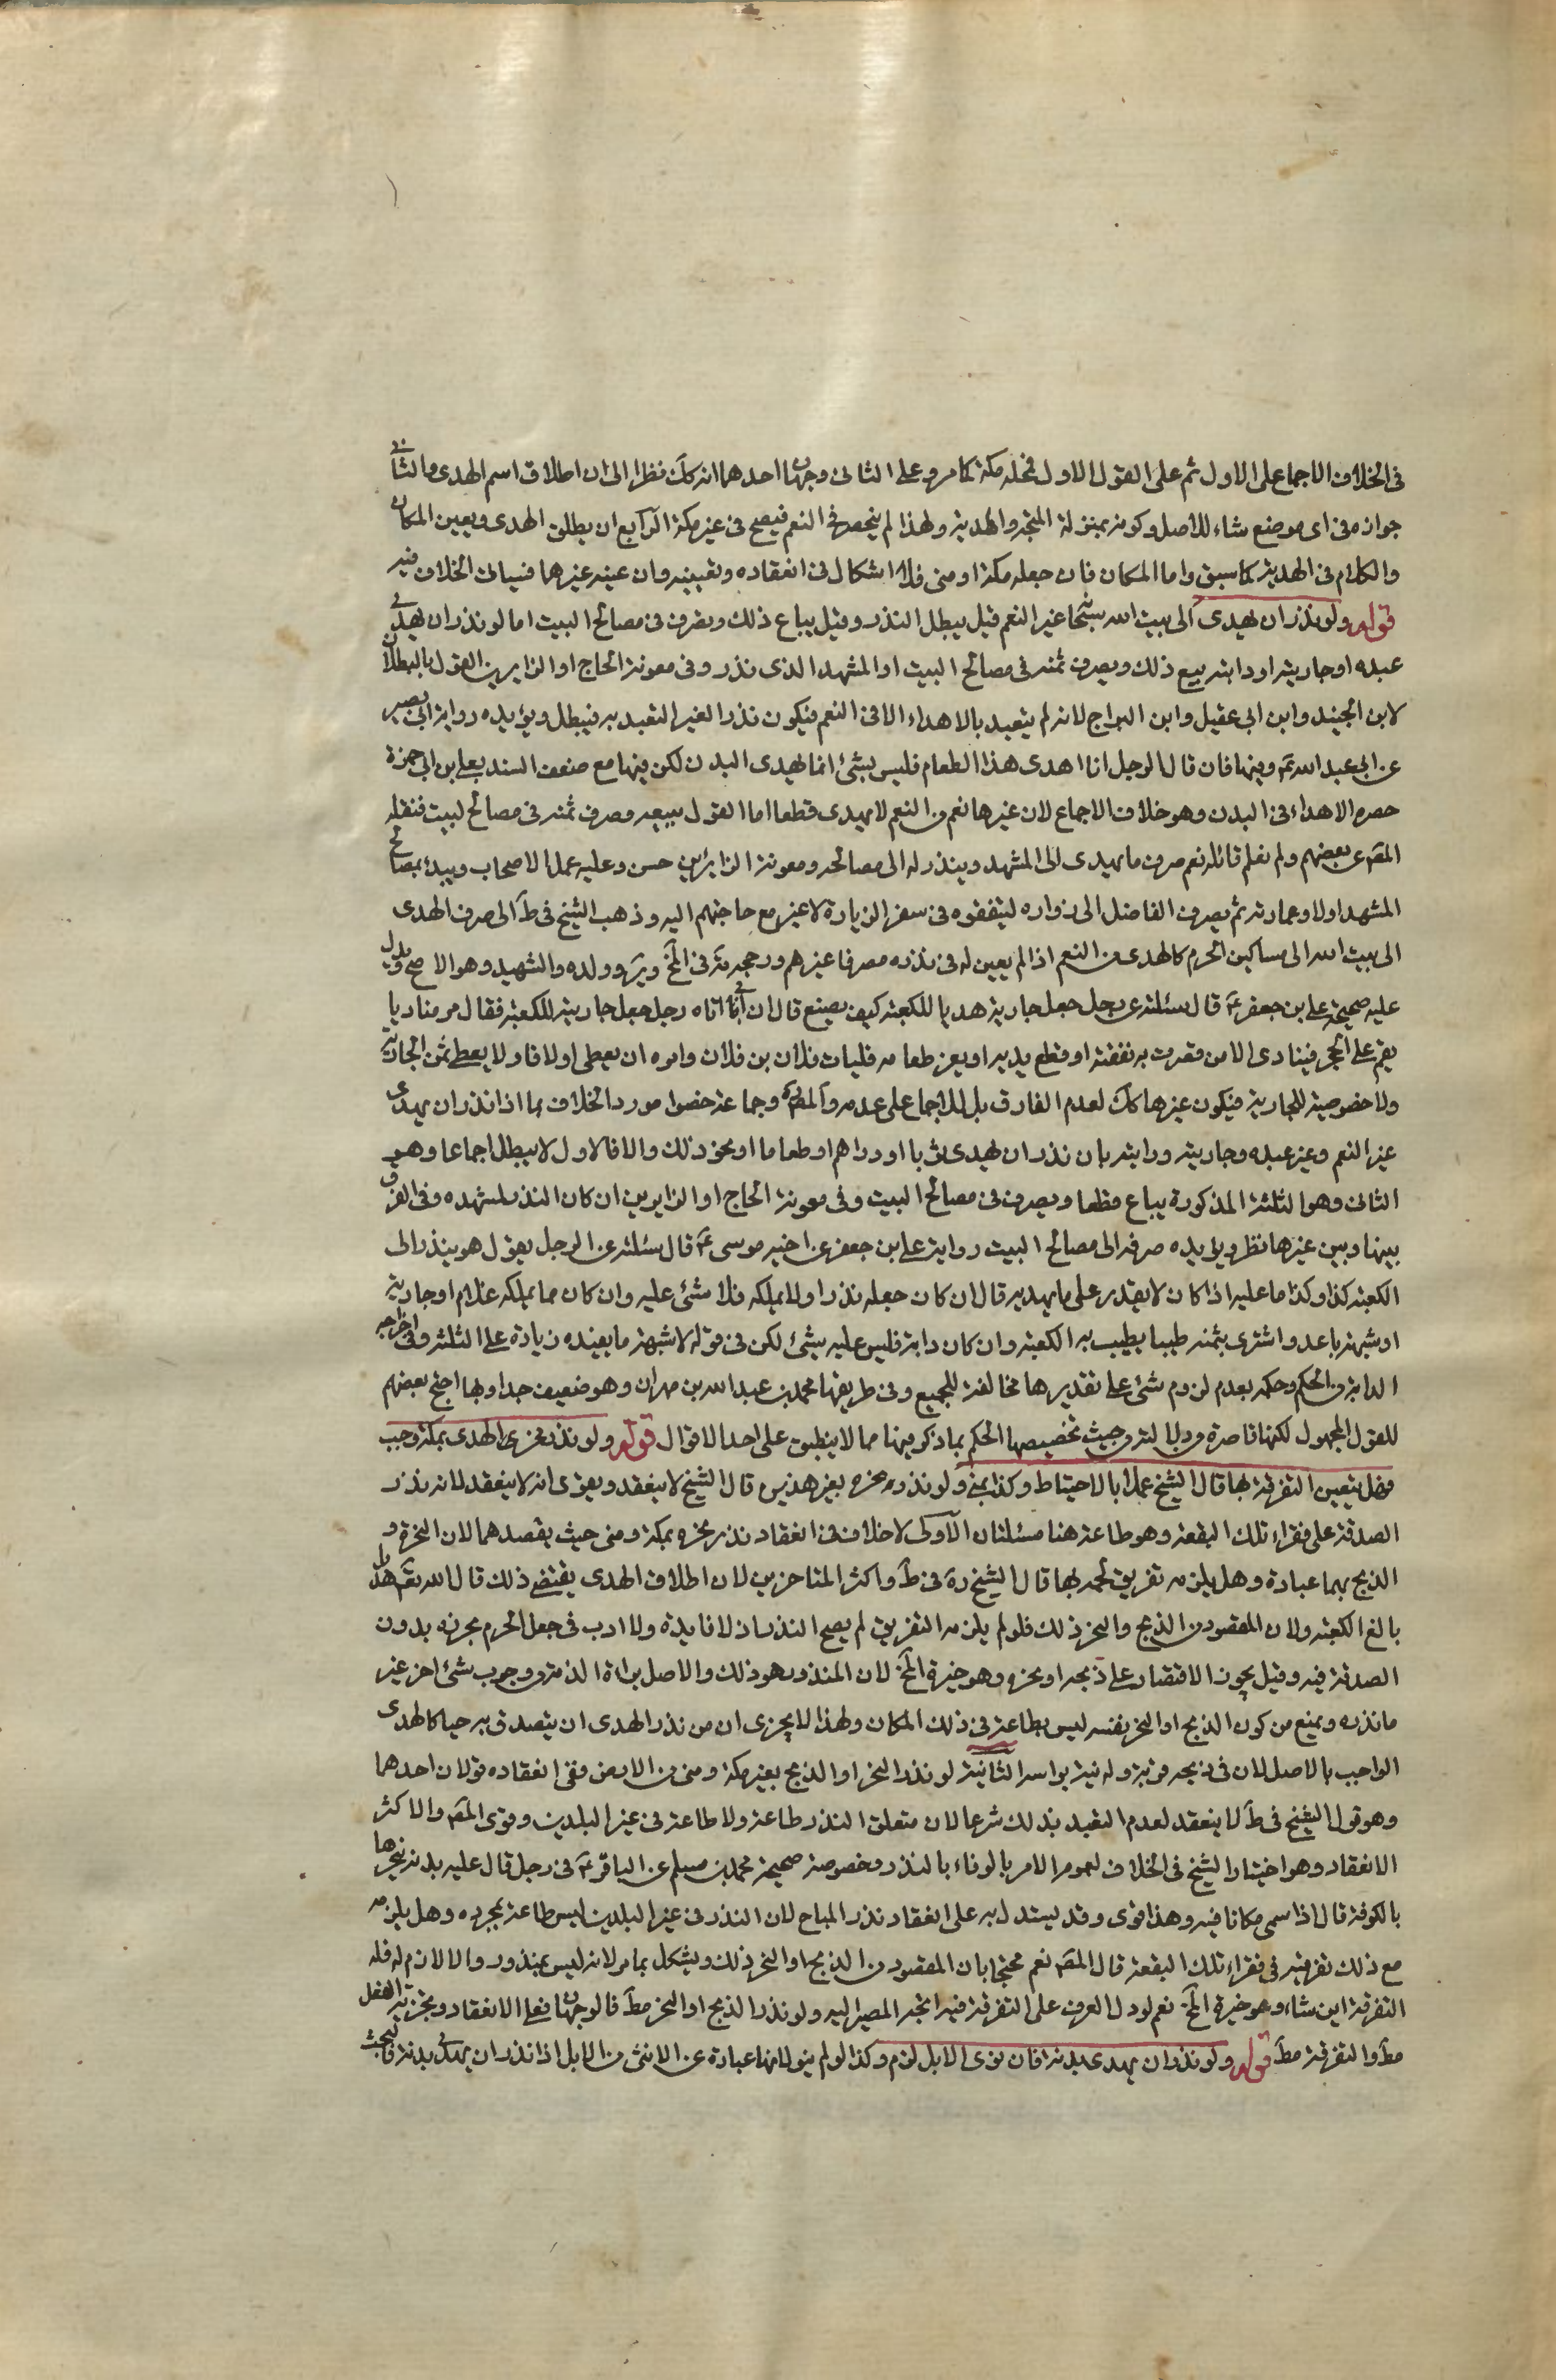 في الخلاف الاجماع على الاول ثم على القول الاول فمحله مكة كما مر وعلى الثاني وجهان احدهما انه كك نظرا الى ان اطلاق اسم الهدى والثاني
جوازه في اى موضع شاء للاصل وكونه بمنزلة المتجه والهدية ولهذا لم ينحصر في النعم فيصح في غير مكة الرابع ان يطلق الهدى ويعين المكان
والكلام في الهدية كما سبق واما المكان فان جعله مكة او منى فلا اشكال في انعقاده وتعيينه وان عينه غيرهما فسياتى الخلاف فيه
قوله ولو نذر ان يهدى الى بيت الله سبحا غير النعم قيل يبطل النذر وقيل يباع ذلك ويصرف في مصالح البيت اما لو نذر ان يهدى
عبده او جاريته او دابته بيع ذلك ويصرف ثمنه في مصالح البيت او المشهد الذى نذر وفي معونة الحاج او الزايرين القول بالبطلان
لابن الجنيد وابن ابى عقيل وابن البراج لانه لم يتعبد بالاهداء الا في النعم فيكون نذرا لغير التعبد به فيبطل ويؤيده رواية ابى بصير
عن ابى عبد الله ع وفيها فان قال الرجل انا اهدى هذا الطعام فليس بشئ انما يهدى البدن لكن فيها مع ضعف السند بعلى بن ابى حمزة
حصره الاهداء في البدن وهو خلاف الاجماع لان غيرها نعم من النعم لا يهدى قطعا اما القول ببيعه وصرف ثمنه في مصالح لبيت فنقله
المص عن بعضهم ولم نعلم قائله نعم صرف ما يهدى الى المشهد وينذر له الى مصالحه ومعونة الزائرين حسن وعليه عمل الاصحاب ويبدئ بمصالح
المشهد اولا وعمارته ثم يصرف الفاضل الى زواره لينفقوه في سفر الزيارة لا غير مع حاجتهم اليه وذهب الشيخ في ط الى صرف الهدى
الى بيت الله الى مساكين الحرم كالهدى من النعم اذا لم يعين له في نذره مصرفا غيرهم ورجحه مة في المخ وير وولده والشهيد وهو الاصح ويدل
عليه صحيحة على بن جعفر ع قال سئلته عن رجل جعل جارية هديا للكعبة كيف يصنع قال ان ابى اتاه رجل جعل جاريته للكعبة فقال مر مناديا
يقم على الحجر فينادى الا من قصرت به نفقته او قطع يديه او يعز طعامه فليات فلان بن فلان وامره ان يعطى اولا فاولا يعطى ثمن الجارية
ولا خصوصية للجارية فيكون غيرها كك لعدم الفارق بل للاجماع على عدمه والمص وجماعة خصوا مورد الخلاف بما اذا نذر ان يهدى
غير النعم وغير عبده وجاريته ودابته بان نذر ان يهدى ثوبا او دراهم او طعاما او نحو ذلك والا فالاول لا يبطل اجماعا وهو
الثانى وهو الثلثة المذكورة يباع قطعا ويصرف في مصالح البيت وفي معونة الحاج او الزايرين ان كان النذر لمشهده وفي الفرق
بينها وبين غيرها نظر ويؤيده صرفه الى مصالح البيت رواية على بن جعفر عن اخيه موسى ع قال سئلته عن الرجل يقول هو ينذر الى
الكعبة كذا وكذا ما عليه اذا كان لا يقدر على ما يهديه قال ان كان جعله نذرا ولا يملكه فلا شئ عليه وان كان مما يملكه غلام او جارية
او شبهة باعه واشترى بثمنه طيبا يطيب به الكعبة وان كان دابة فليس عليه شئ لكن في قوله لا شبهة ما يفيده زيادة على الثلثة وفي اخراجه
الدابة من الحكم وحكمه بعدم لزوم شئ على تقديرها مخالفة للجميع وفي طريقها محمد بن عبد الله بن مهران وهو ضعيف جدا وبها احتج بعضهم
للقول المجهول لكنها قاصرة دلالة من حيث تخصيصها الحكم بما ذكر فيها مما لا ينطبق على احد الاقوال قوله ولو نذر نحر الهدى بمكة وجب
وهل يتعين التفرقة بها قال الشيخ عملا بالاحتياط وكذا بمنى ولو نذر نحره بغير هذين قال الشيخ لا ينعقد ويقوى انه لا ينعقد لانه نذر
الصدقة على فقراء تلك البقعة وهو طاعة هنا مسئلتان الاولى لا خلاف في انعقاد نذر نحره بمكة ومنى حيث يقصدهما لان النحر و
الذبح بهما عبادة وهل يلزمه تفريق لحمه بها قال الشيخ ره في ط واكثر المتاخرين لان اطلاق الهدى يقتضى ذلك قال الله تع هديا
بالغ الكعبة ولان المقصود من الذبح والنحر ذلك فلو لم يلزمه التفريق لم يصح النذر اذ لا فايدة ولا ادب في جعل الحرم مجزرة بدون
الصدقة فيه وقيل يجوز الاقتصار على ذبحه او نحره وهو خيرة المخ لان المنذور هو ذلك والاصل براءة الذمة من وجوب شئ اخر غير
ما نذره ويمنع من كون الذبح او النحر بنفسه ليس بطاعة في ذلك المكان ولهذا لا يجزى ان من نذر الهدى ان يتصدق به حيا كالهدى
الواجب بالاصل لان في ذبحه قربة وله نية براسه الثانية لو نذر النحر او الذبح بغير مكة ومنى من الارض ففي انعقاده قولان احدهما
وهو قول الشيخ في ط لا ينعقد لعدم التعبد بذلك شرعا لان متعلق النذر طاعة ولا طاعة في غير البلدين وقوى المص والاكثر
الانعقاد وهو اختيار الشيخ في الخلاف لعموم الامر بالوفاء بالنذر وخصوصة صحيحة محمد بن مسلم عن الباقر ع في رجل قال عليه بدنة ينحرها
بالكوفة قال اذا سمى مكانا فيه وهذا اقوى وقد يستدل به على انعقاد نذر المباح لان النذر في غير البلدين ليس طاعة بمجرده وهل يلزمه
مع ذلك تفرقته في فقراء تلك البقعة قال المص نعم محتجا بان المقصود من الذبح او النحر ذلك ويشكل بما مر لانه ليس بمنذور والا لالزم له فله
التفرقة اين شاء وهو خيرة المخ نعم لو دل العرف على التفرقة فيه اتجه المصير اليه ولو نذر الذبح او النحر مط فالوجهان فعلى الانعقاد ويجزيه الفعل
مط والتفرقة مط قوله ولو نذر ان يهدى بدنة فان نوى الابل لزم وكذا لو لم ينو لانها عبارة عن الانثى من الابل اذا نذر ان يهدى بدنة فالبحث